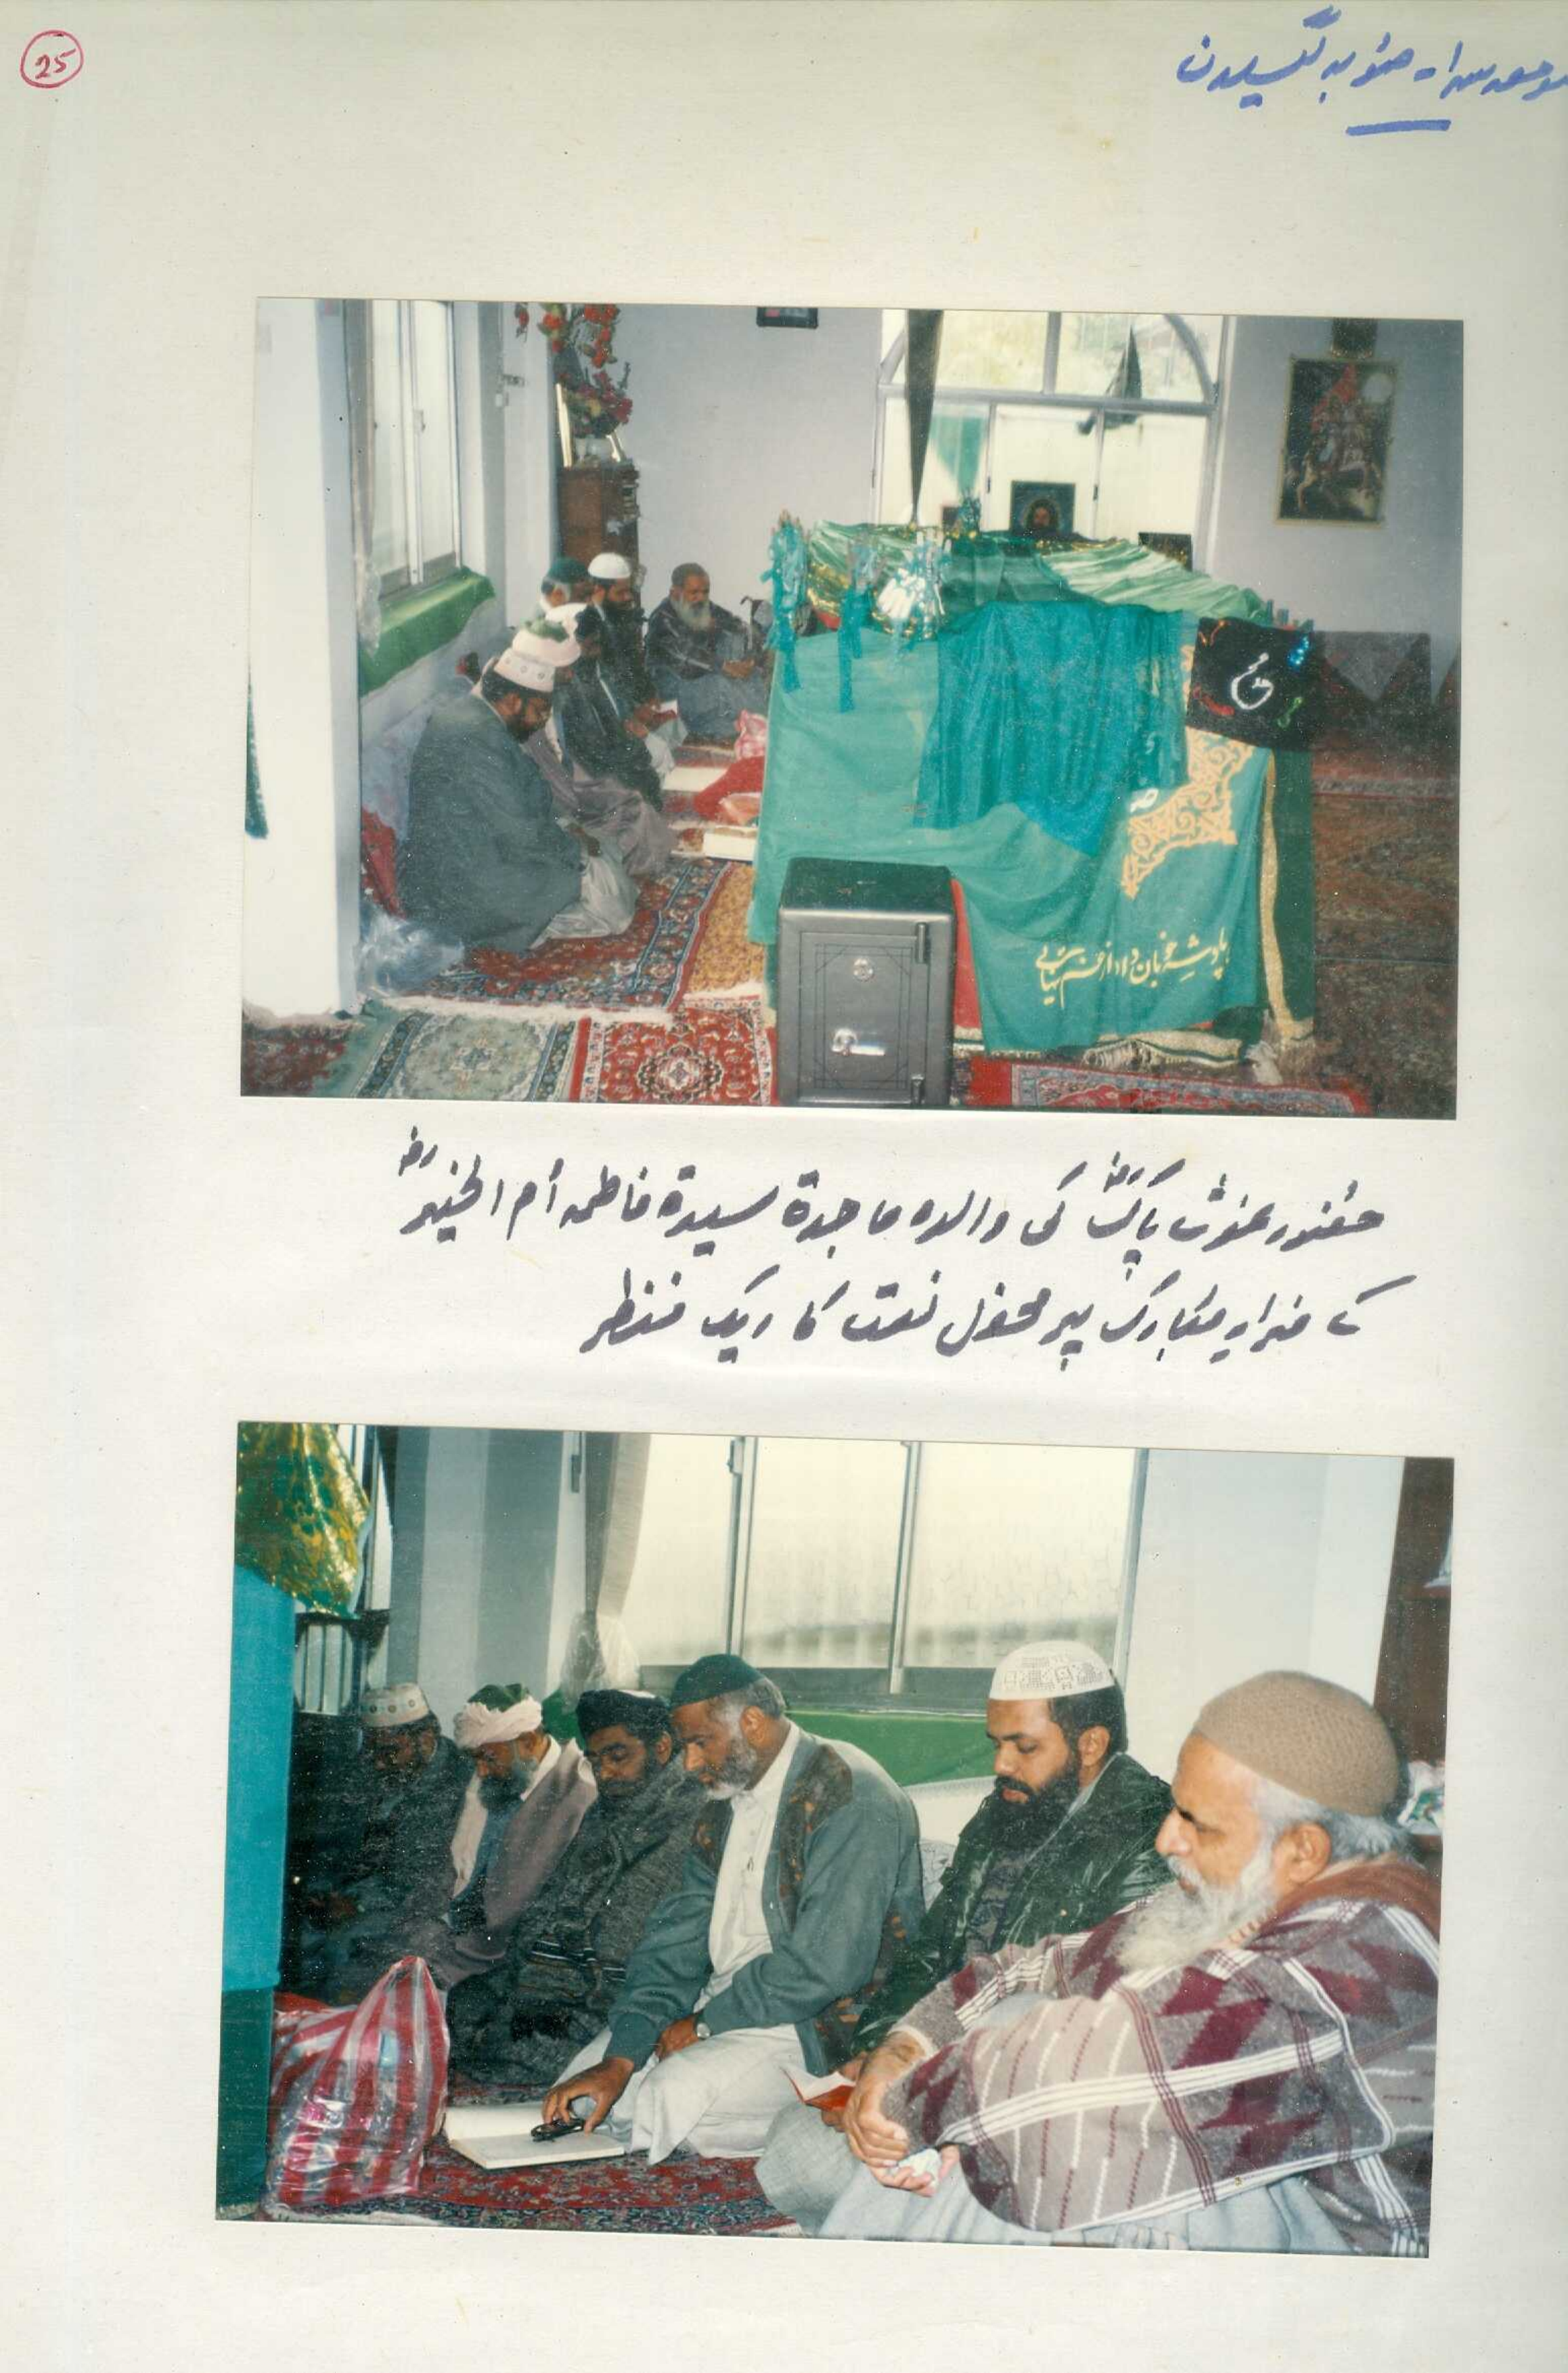 25
صومعہ سرا۔ صوبہ گیلان
حضور غوث پاکؓ کی والدہ ماجدۃ سیدۃ فاطمہ اُم الخیرؓ
کے مزارِ مبارک پر محفل نعت کا ایک منظر